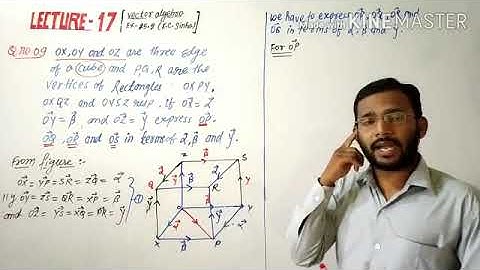 LECTURE-17 [vector algebra
Ex-25.2 (K.C. Sinha)]
Q.no.09 OX, OY and OZ are three edge
of a cube and P, Q, R are the
vertices of Rectangles OXPY,
OXQZ and OYSZ resp. If OX = α
OY = β, and OZ = γ express OP,
OQ, OR and OS in terms of α, β and γ.
From figure:-
OX = YP = SR = ZQ = α
11y OY = ZS = QR = XP = β
and OZ = YS = XQ = PR = γ
①
Z
β
S
Q
R
O
Y
X
β
P
we have to express OP, OQ, OR and
OS in terms of α, β and γ.
For OP
KINEMASTER